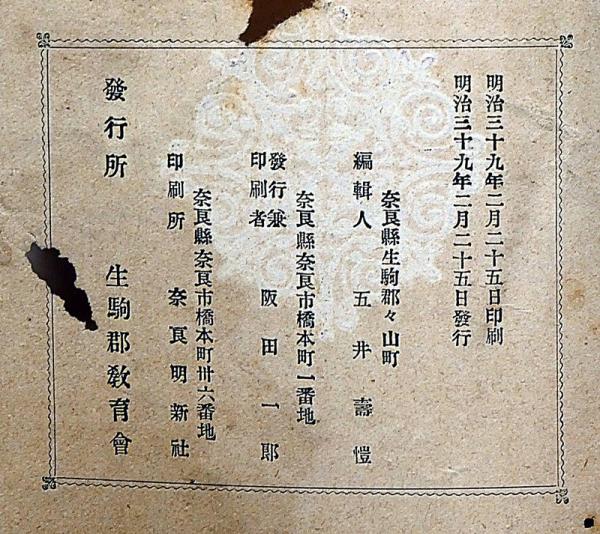 明治三十九年二月二十五日印刷
明治三十九年二月二十五日發行
奈良縣生駒郡々山町
編輯人 五井壽愷
奈良縣奈良市橋本町一番地
發行兼印刷者 阪田一郎
奈良縣奈良市橋本町卅六番地
印刷所 奈良明新社
發行所 生駒郡敎育會